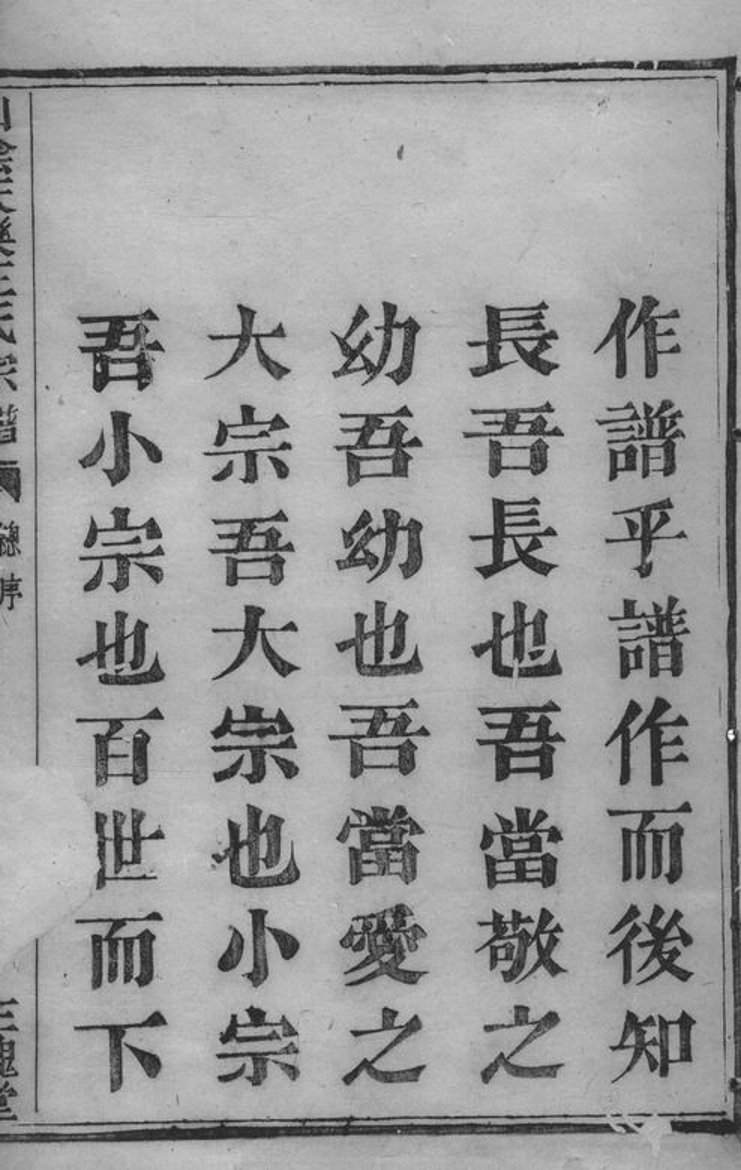 作譜乎譜作而後知
長吾長也吾當敬之
幼吾幼也吾當愛之
大宗吾大宗也小宗
吾小宗也百世而下
山陰天樂王氏宗譜 總序 三槐堂